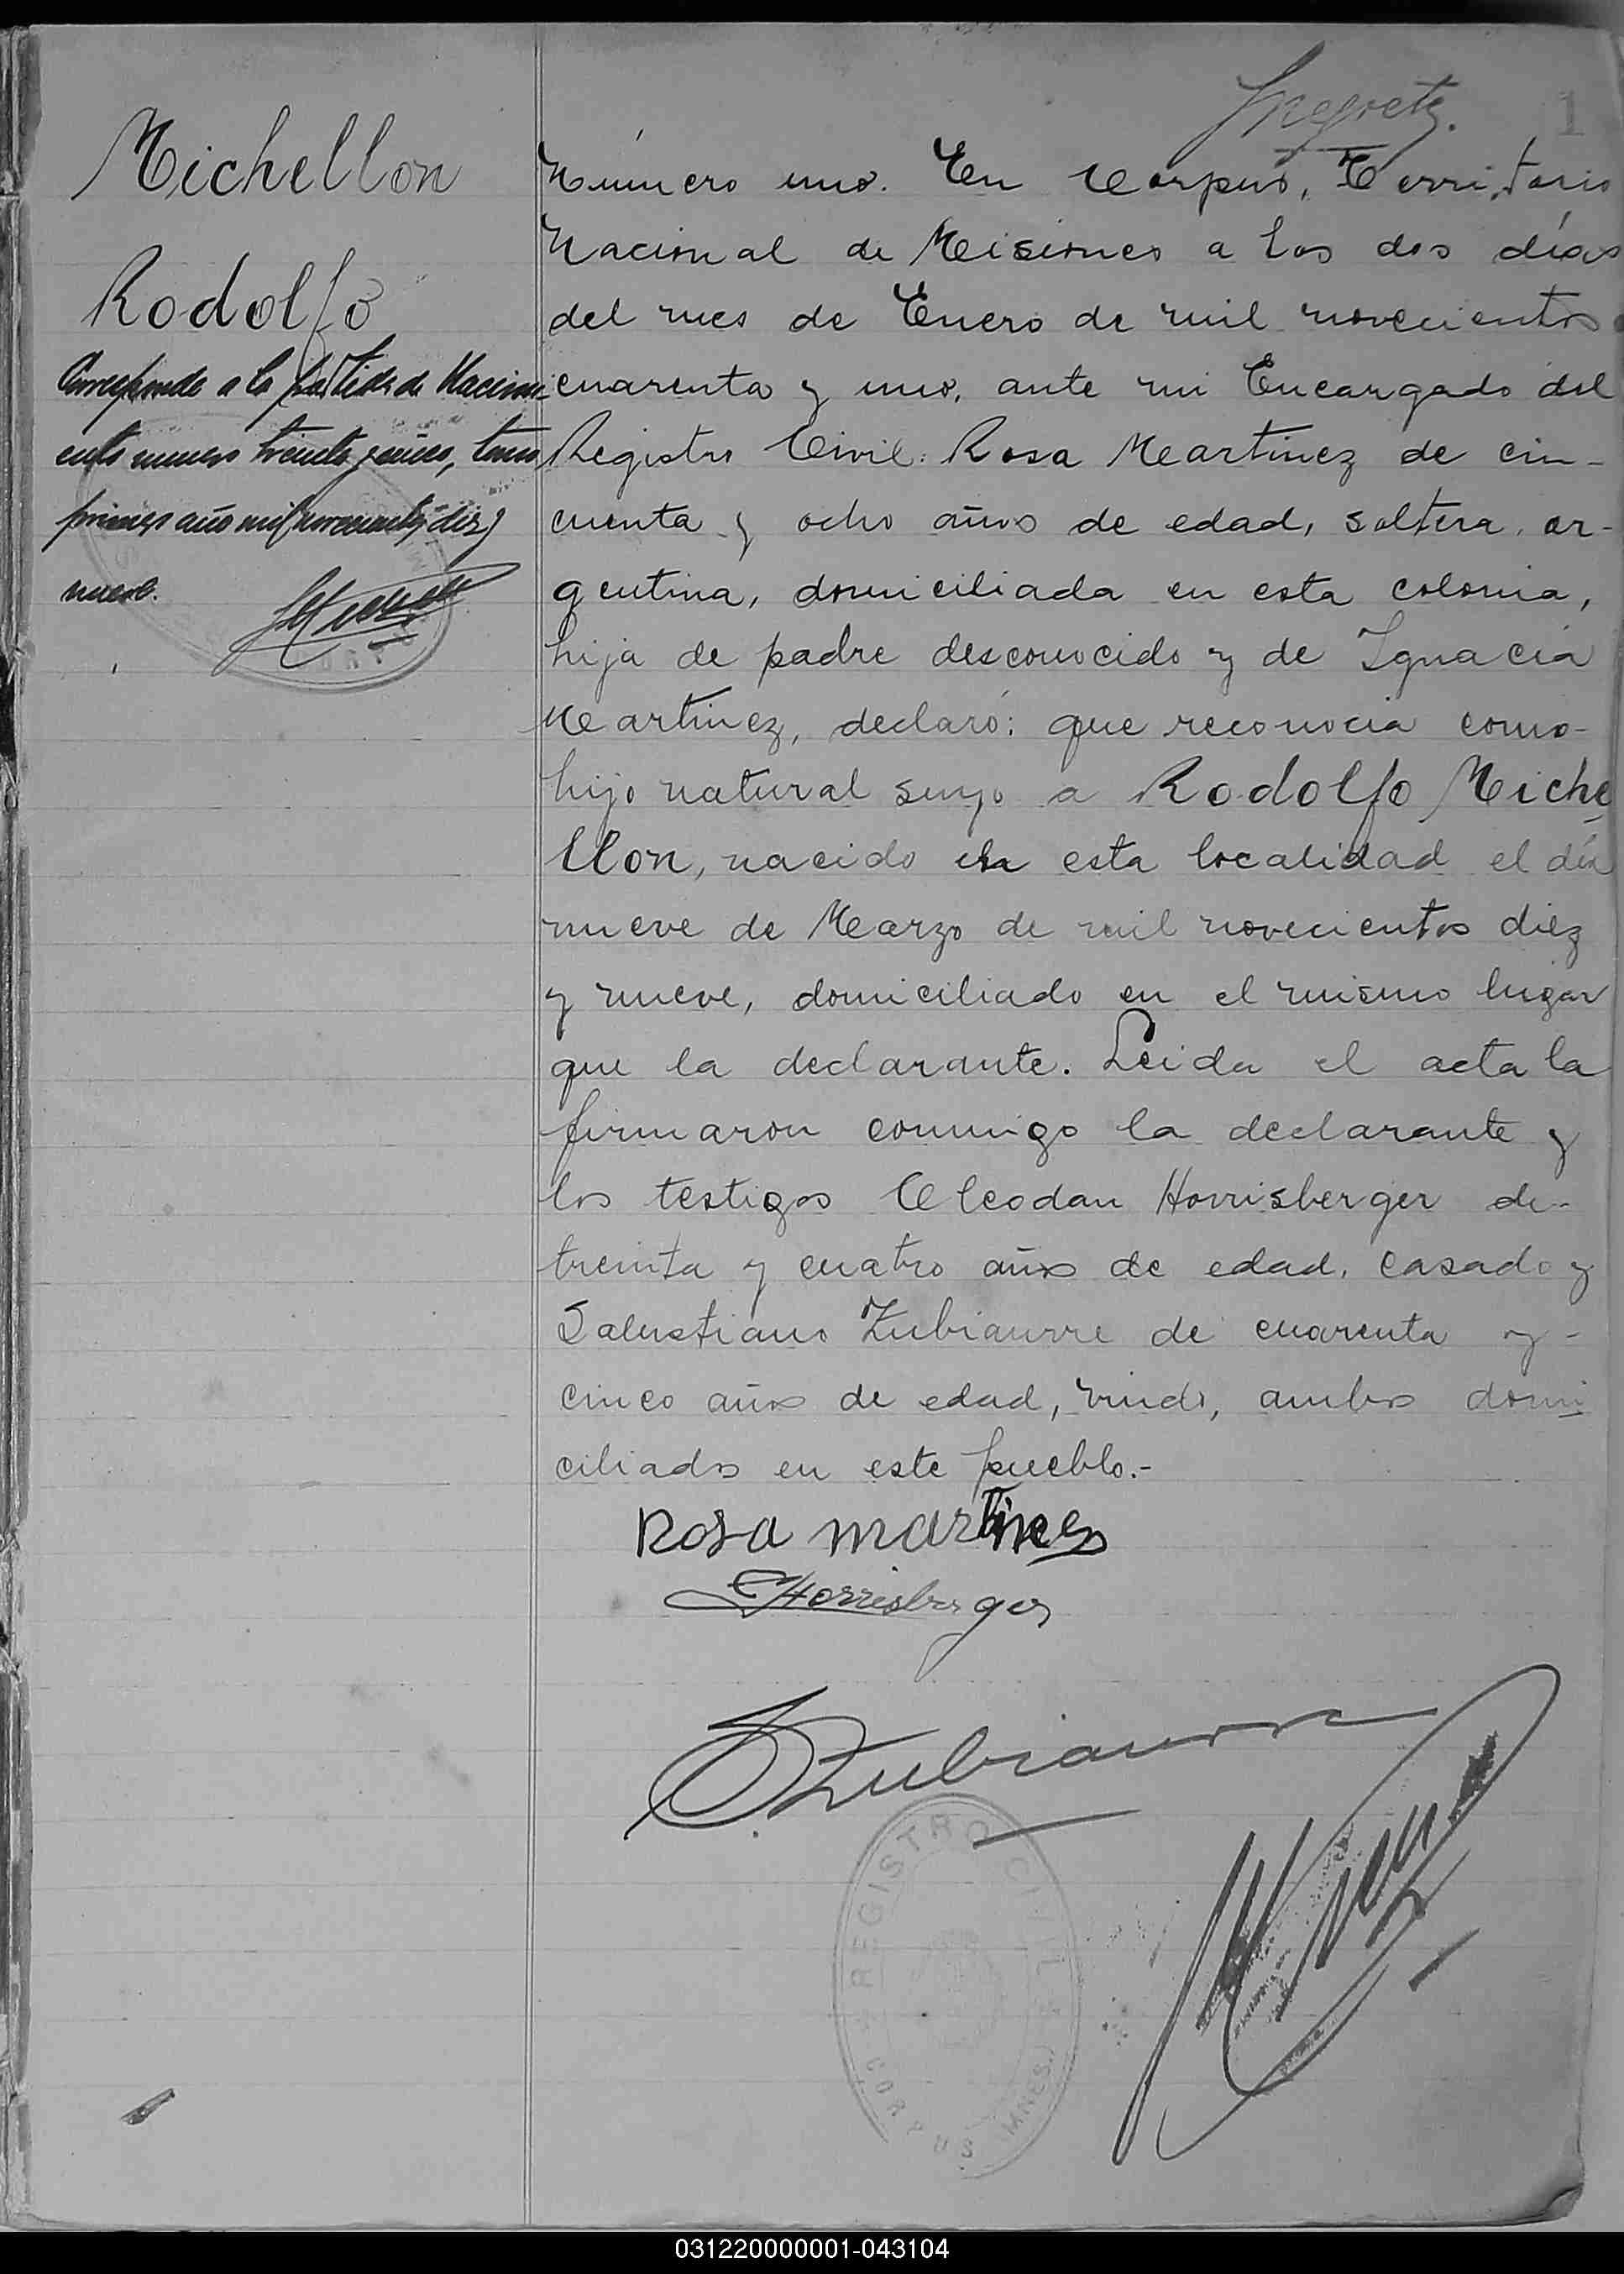 1
Michellon
Rodolfo
Corresponde a la partida de Nacimi-
ento numero treinta y cinco, tomo
primero año mil novecientos diez y
nueve.
Número uno. En Corpus, Territorio
Nacional de Misiones a los dos días
del mes de Enero de mil novecientos
cuarenta y uno, ante mi Encargado del
Registro Civil: Rosa Martinez de cin-
cuenta y ocho años de edad, soltera, ar-
gentina, domiciliada en esta colonia,
hija de padre desconocido y de Ignacia
Martinez, declaró: que reconocia como-
hijo natural suyo a Rodolfo Miche
llon, nacido en esta localidad el día
nueve de Marzo de mil novecientos diez
y nueve, domiciliado en el mismo lugar
que la declarante. Leida el acta la
firmaron conmigo la declarante y
los testigos Cleodan Horrisberger de-
treinta y cuatro años de edad, casado y
Salustiano Zubiaurre de cuarenta y-
cinco años de edad, viudo, ambos domi
ciliados en este pueblo.-
Rosa Martines
CHorrisberger
SZubiaurre
REGISTRO CIVIL
CORPUS (MNES.)
031220000001-043104